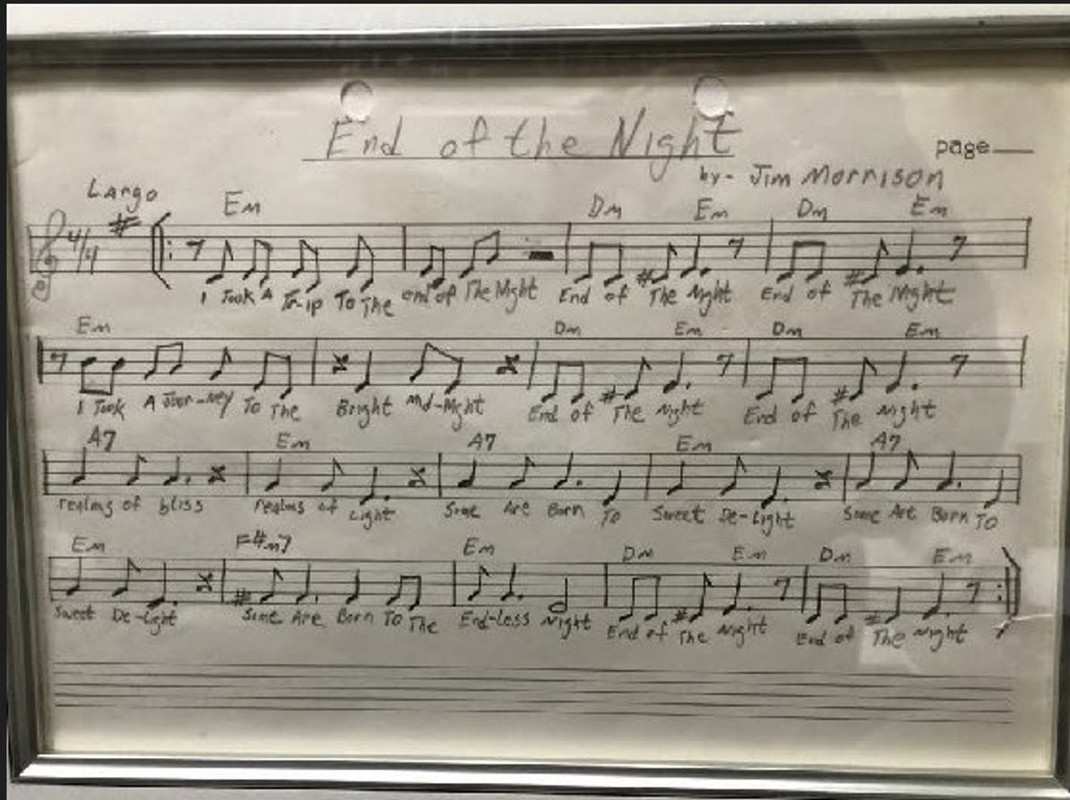 End of the Night
page
by- Jim Morrison
Largo
Em Dm Em Dm Em
4/4
I Took A Tr-ip To The end of The Night End of The Night End of The Night
Em Dm Em Dm Em
I Took A Jour-ney To The Bright Mid-Night End of The Night End of The Night
A7 Em A7 Em A7
realms of bliss realms of Light Some Are Born To Sweet De-Light Some Are Born To
Em F#m7 Em Dm Em Dm Em
Sweet De-Light Some Are Born To The End-less Night End of The Night End of The Night